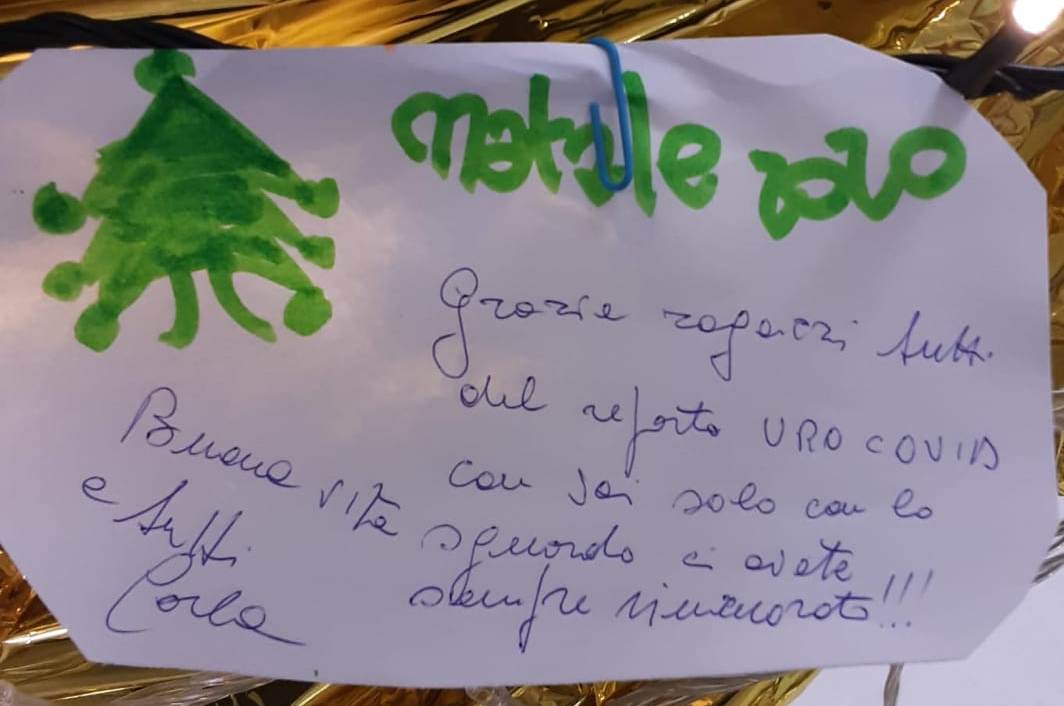 Natale 2020
Grazie ragazzi tutti
del reparto URO COVID
con solo con lo
sguardo ci avete
sempre rincuorato!!!
Buona vita
a tutti
Carla